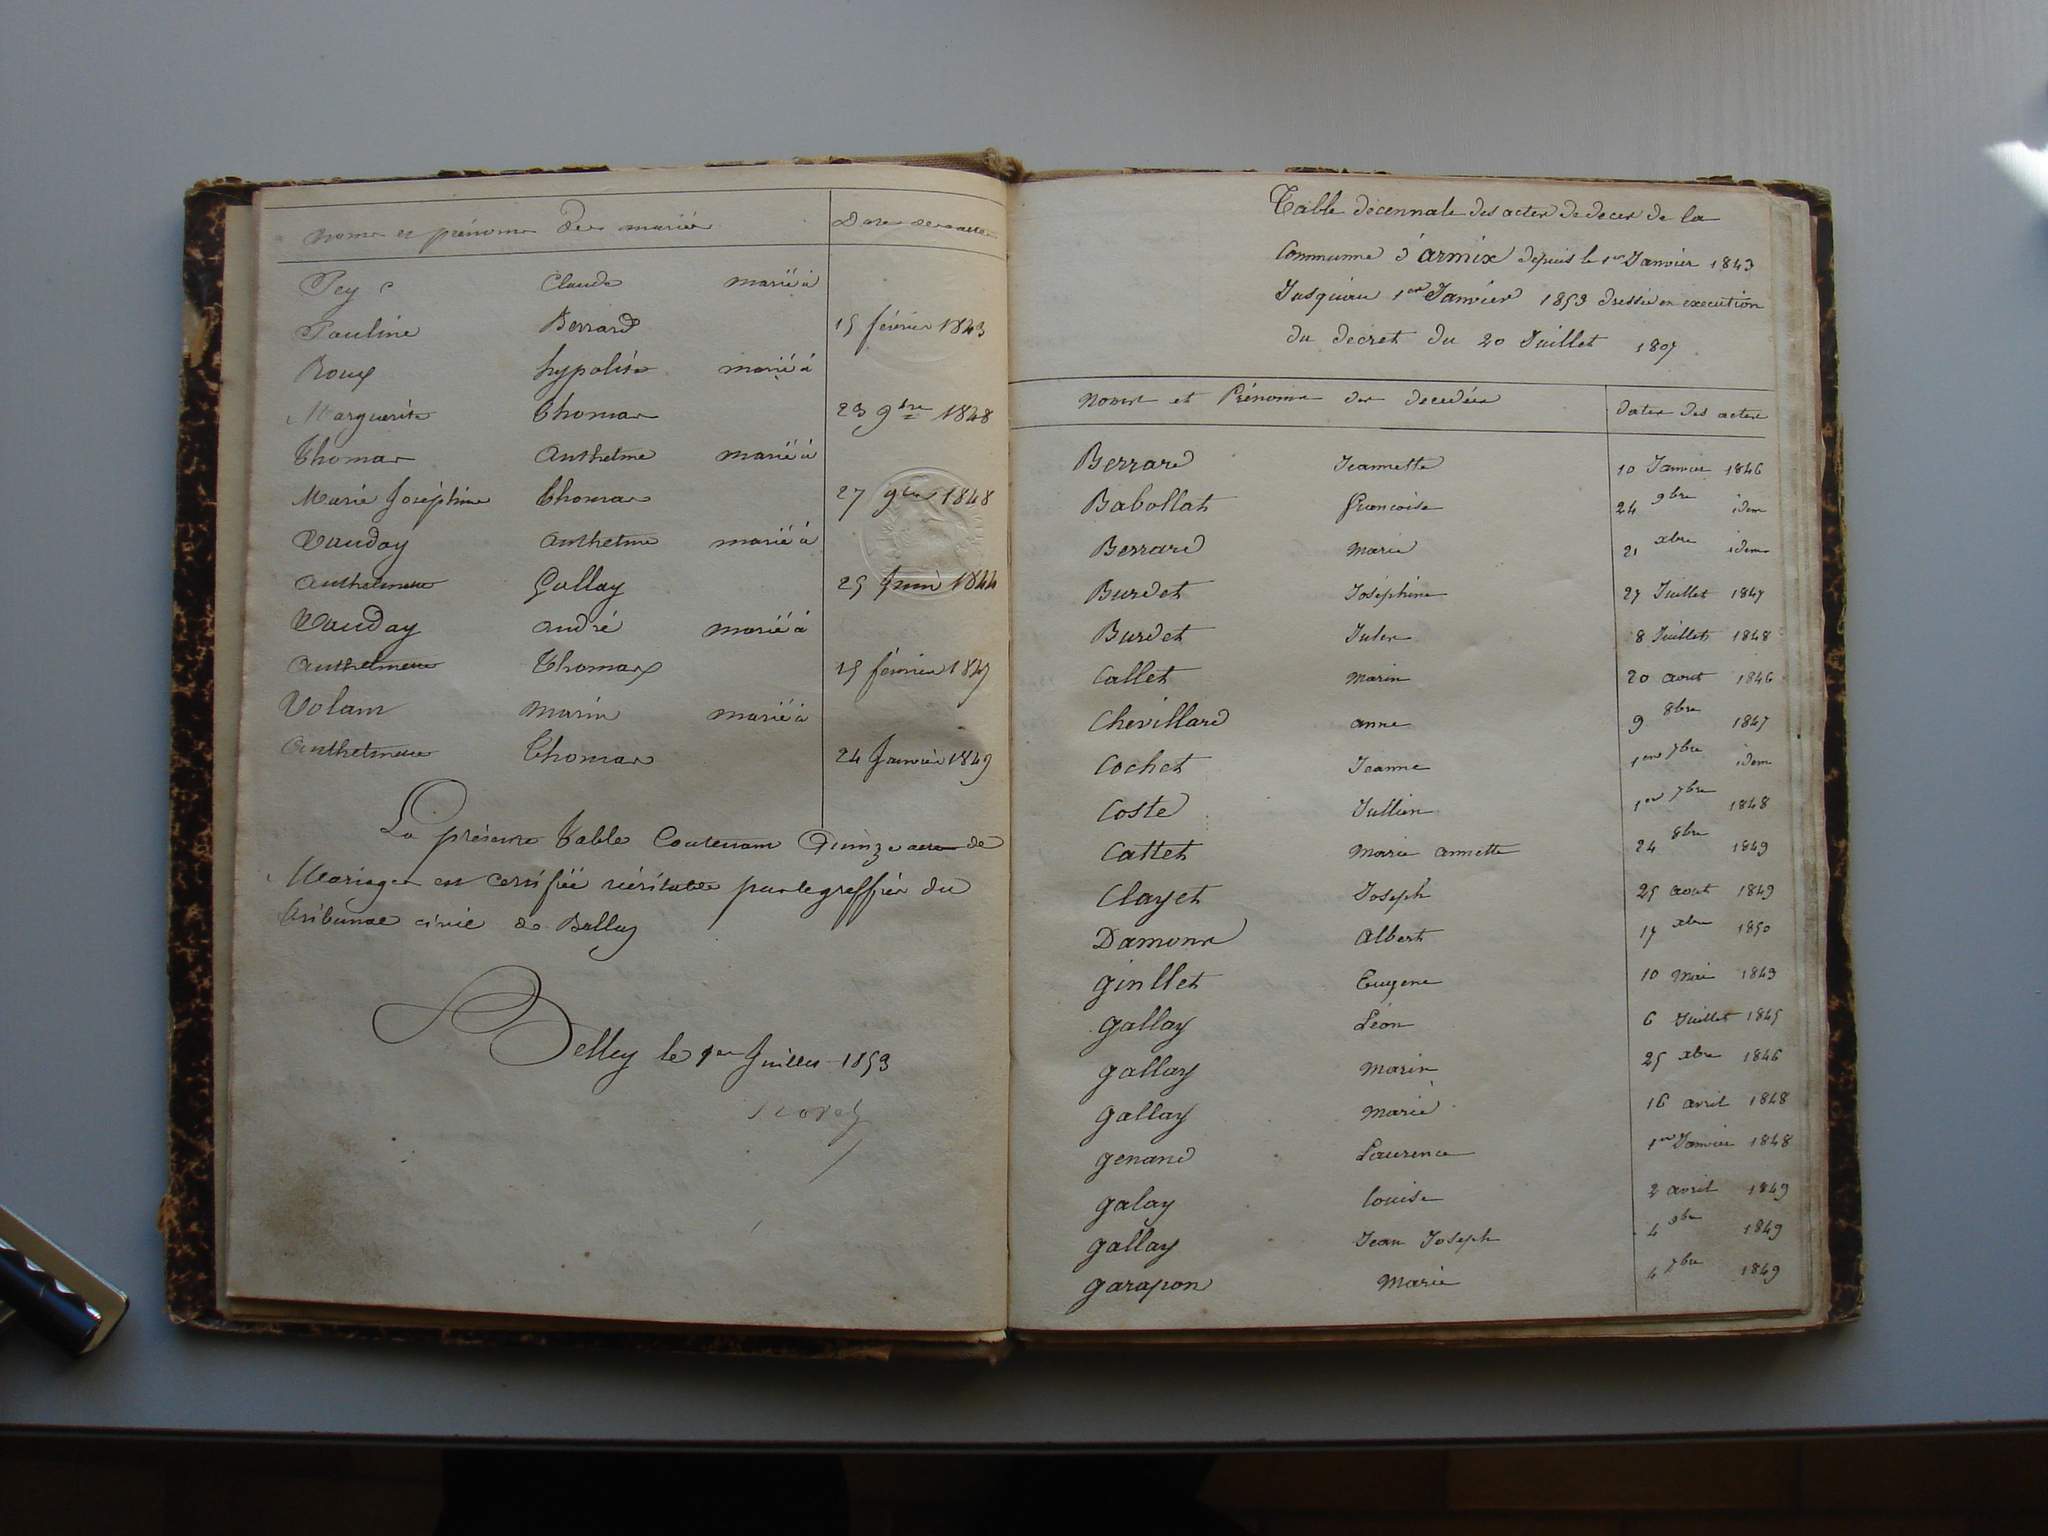 Noms et prénoms des mariés Dates des actes
Pey Claude marié à
Pauline Berrard 15 février 1843
Roux hypolite marié à
Marguerite Thomas 23 9bre 1848
Thomas Anthelme marié à
Marie Joséphine Thomas 27 9bre 1848
Vauday Anthelme marié à
Anthelmette Gallay 25 Juin 1844
Vauday André marié à
Anthelmette Thomas 15 février 1847
Volam Marin marié à
Anthelmette Thomas 24 Janvier 1849
La présente Table Contenant Quinze actes de
Mariages est certifiée véritable par le greffier du
tribunal civil de Belley
Belley le 1er Juillet 1853
Table décennale des actes de deces de la
Commune d'armix depuis le 1er Janvier 1843
Jusquau 1er Janvier 1853 dressée en execution
du decret du 20 Juillet 1807
Noms et Prénoms des decedées dates des actes
Berrard Jeannette 10 Janvier 1846
Babollat françoise 24 9bre idem
Berrard Marie 21 xbre idem
Burdet Joséphine 27 Juillet 1847
Burdet Jules 8 Juillet 1848
Callet Marin 20 aout 1846
Chevillard anne 9 8bre 1847
Cochet Jeanne 1er 7bre idem
Coste Jullien 1er 7bre 1848
Cattet Marie annette 24 8bre 1849
Clayet Joseph 25 aout 1849
Damons Albert 17 xbre 1850
ginllet Eugene 10 Mai 1849
gallay Léon 6 Juillet 1845
gallay Marin 25 xbre 1846
gallay Marie 16 avril 1848
genand Laurence 1er Janvier 1848
galay louise 2 avril 1849
gallay Jean Joseph 4 9bre 1849
garapon Marie 4 7bre 1849